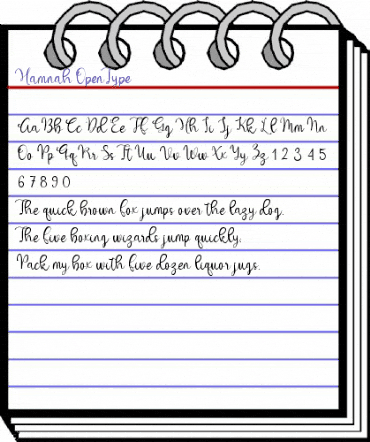 Hamnah OpenType
Aa Bb Cc Dd Ee Ff Gg Hh Ii Jj Kk Ll Mm Nn
Oo Pp Qq Rr Ss Tt Uu Vv Ww Xx Yy Zz 1 2 3 4 5
6 7 8 9 0
The quick brown fox jumps over the lazy dog.
The five boxing wizards jump quickly.
Pack my box with five dozen liquor jugs.